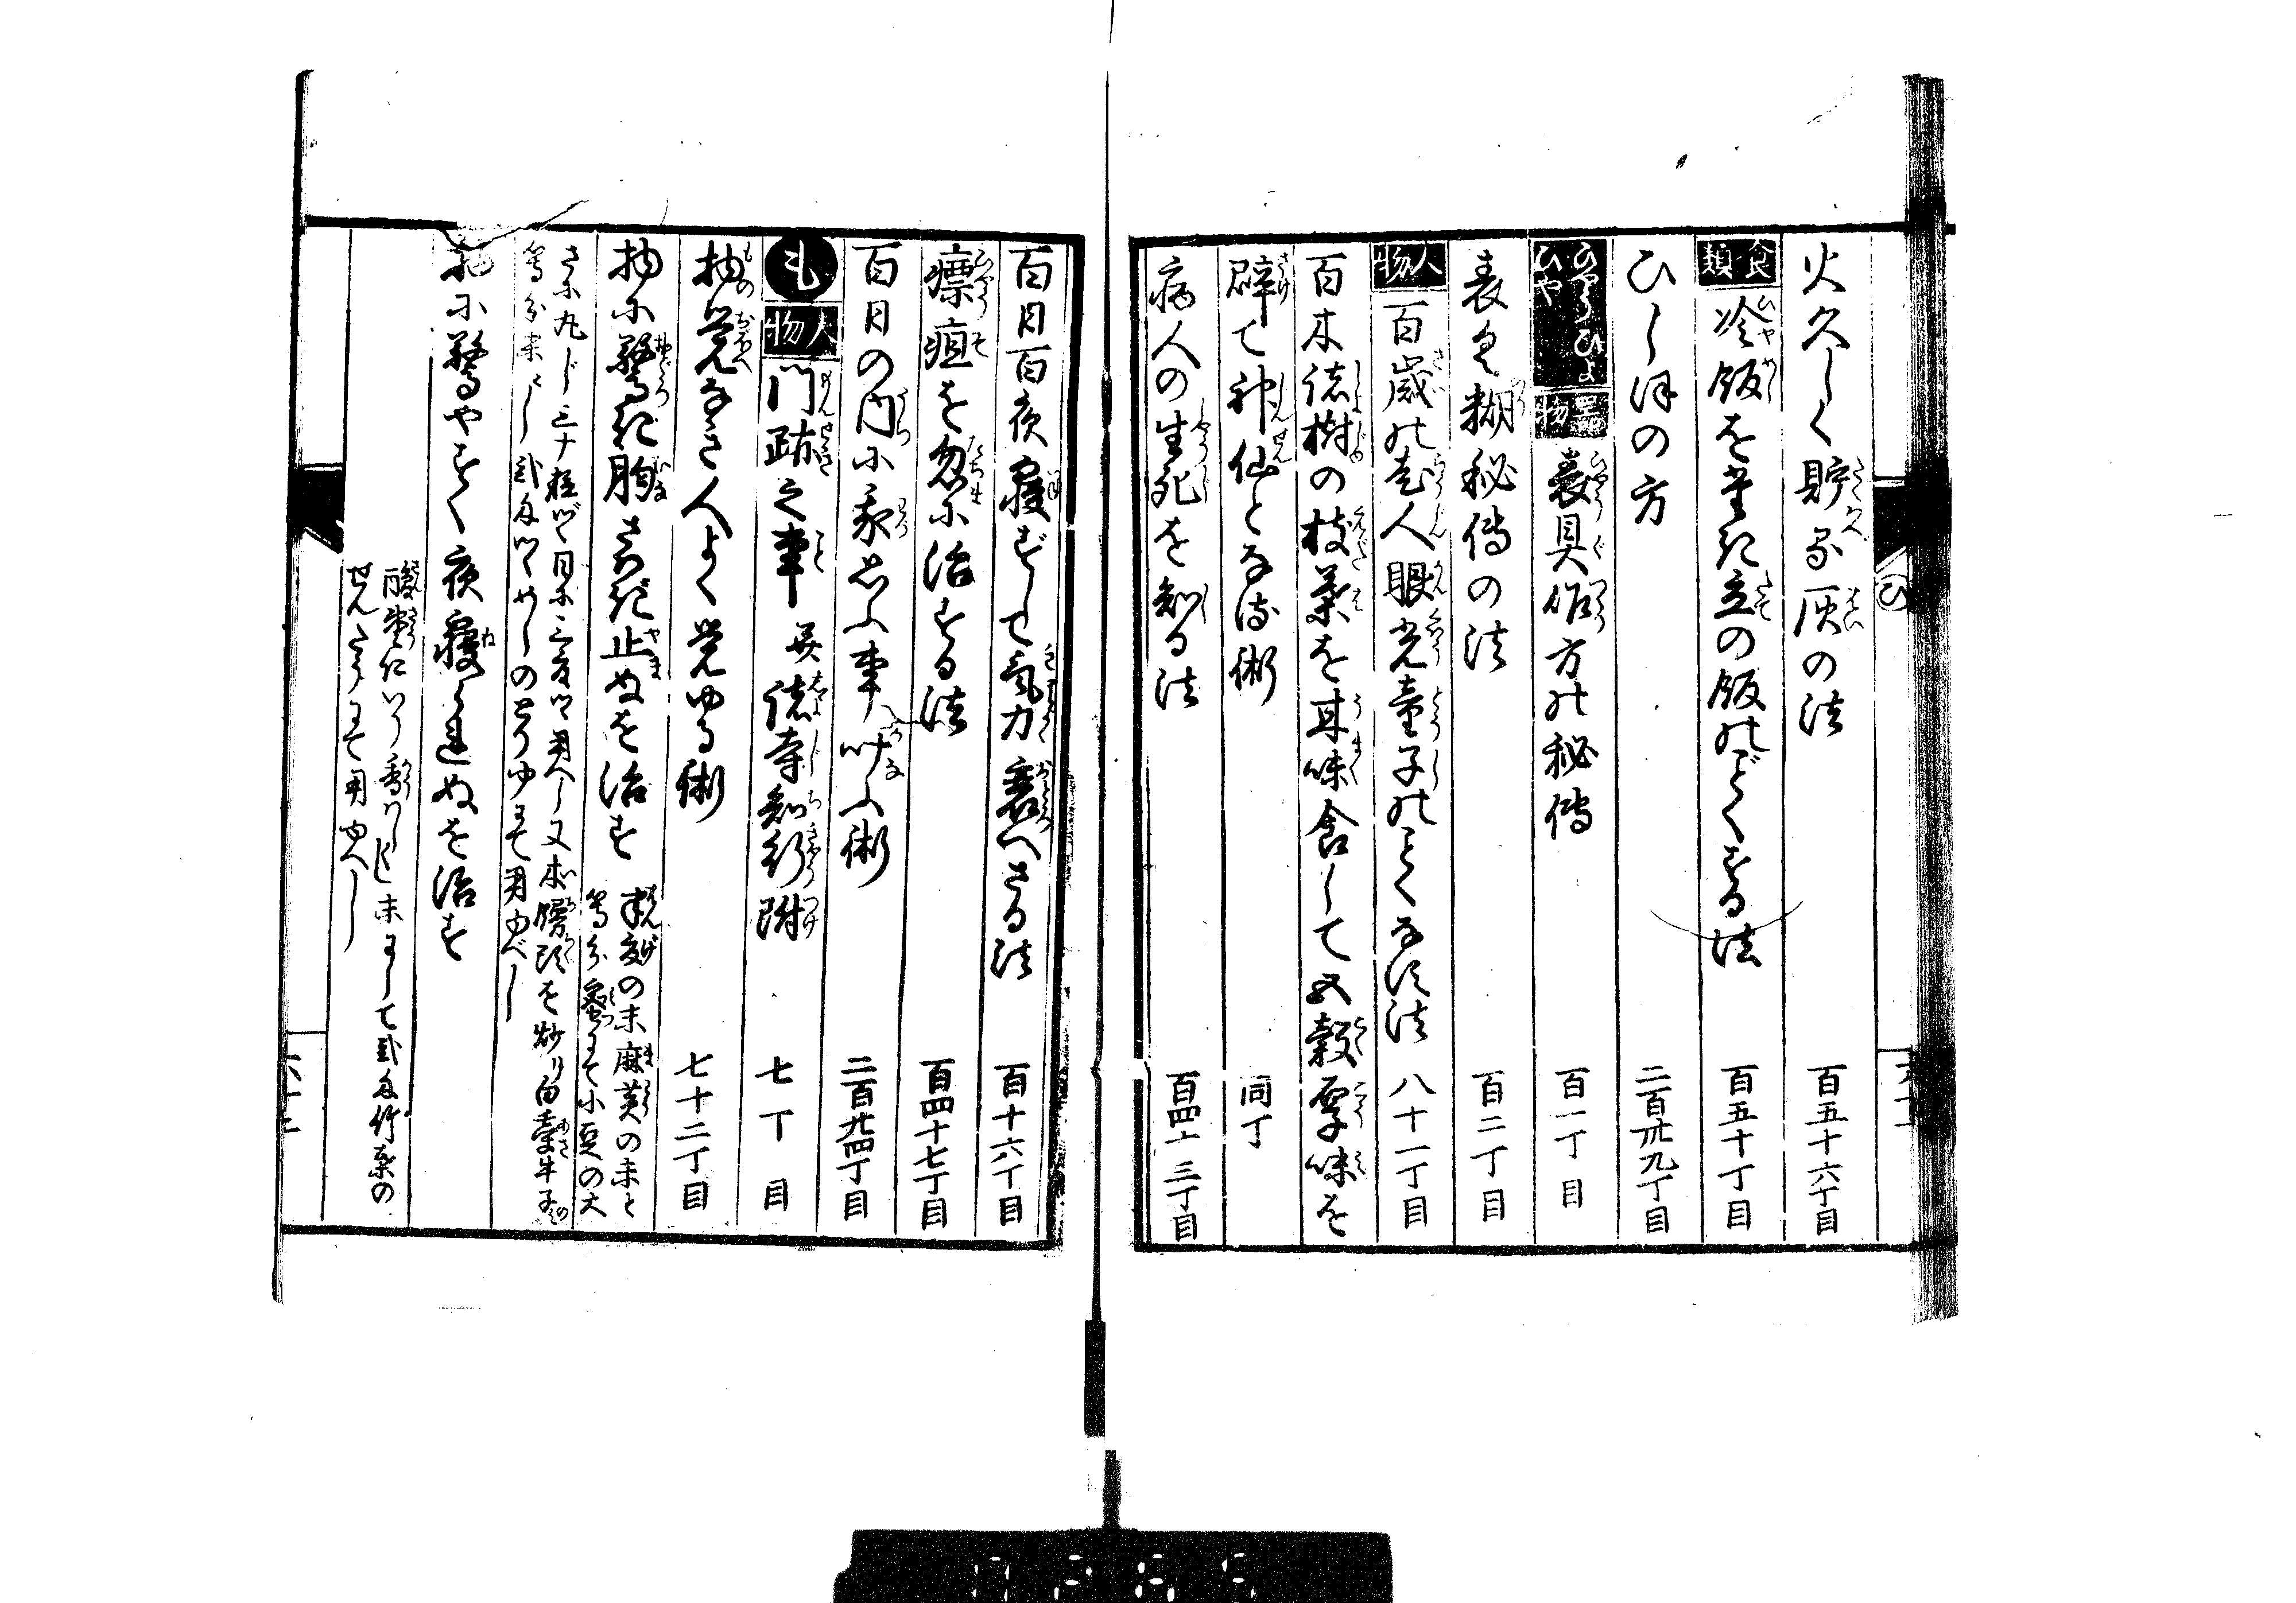 火久しく貯る灰の法 百五十六丁目
食類 冷飯を堂き立の飯のごとくする法 百五十丁目
ひしほの方 二百卅九丁目
ひやうひよ ひや 器物 表具作方の秘傳 百一丁目
表具糊秘傳の法 百二丁目
人物 百歳の老人眼光童子のごとくなす法 八十一丁目
百木諸樹の枝葉を甘味食して五穀厚味を
辟て神仙となる術 同丁
病人の生死を知る法 百四十三丁目
ひ
百日百夜寝ずして気力衰へざる法 百十六丁目
瘭疽を忽に治する法 百四十七丁目
百日の内に我思ふ事叶ふ術 二百廿四丁目
も 人物 門跡之事 并諸寺知行附 七丁目
物覚なき人よく覚ゆる術 七十二丁目
物に驚き胸さわぎ止ぬを治す 半夏の末麻黄の末と
等分蜜にて小豆の大
さに丸じ三十粒づゝ日に三度づゝ用べし又
等分末にし弐匁づゝめしのとりゆにて用ゆべし
物に驚やすく夜寝られぬを治す
酸棗仁いり香ばしくし末にして弐匁竹葉の
せんじたるにて用ゆべし